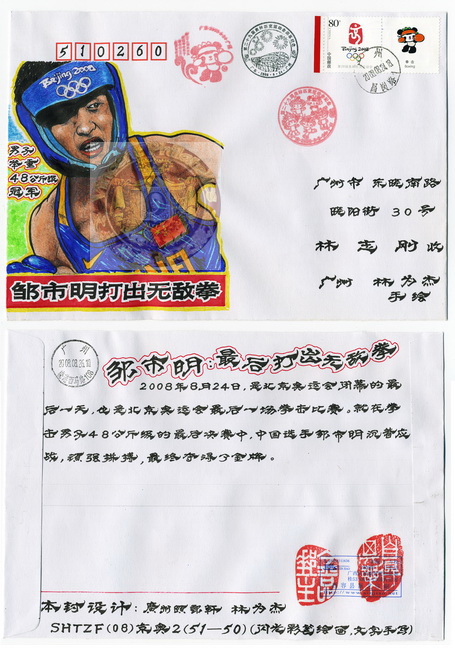 510260
80分
中国邮政
Beijing 2008
Beijing 2008
广州
男子
拳击
48公斤级
冠军
邹市明打出无敌拳
广州市 东晓南路
晓阳街 30号
林志刚收
广州 林为杰
手绘
广州
邹市明:最后打出无敌拳
2008年8月24日,是北京奥运会闭幕的最
后一天,也是北京奥运会最后一场拳击比赛。就在拳
击男子48公斤级的最后决赛中,中国选手邹市明沉着应
战,顽强拼搏,最终夺得了金牌。
本封设计:广州 林为杰
SHTZF(08)京奥2(51-50)(闪光彩笔绘画,文字手写)